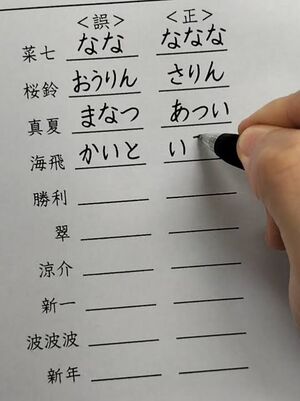 <誤> <正>
菜七 なな ななな
桜鈴 おうりん さりん
真夏 まなつ あつい
海飛 かいと い
勝利
翠
涼介
新一
波波波
新年